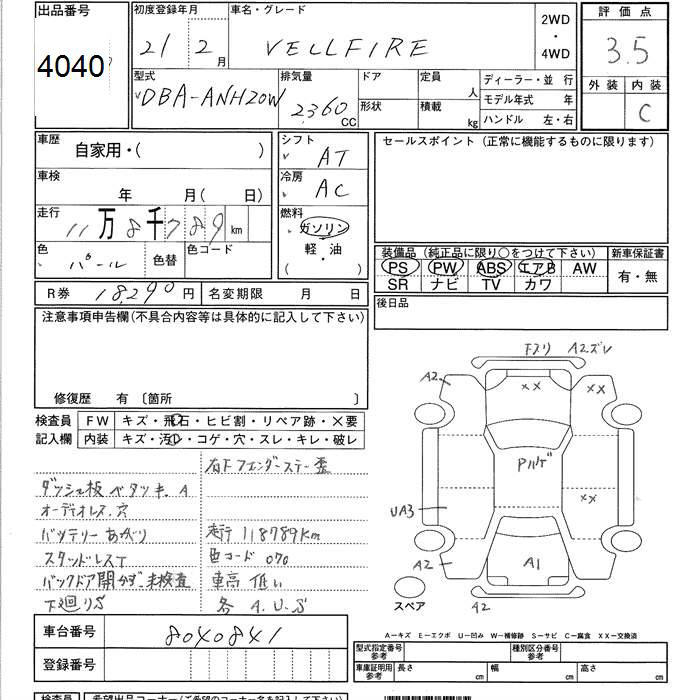 出品番号 初度登録年月 車名・グレード 2WD・4WD 評価点
4040 21年 2月 VELLFIRE 3.5
型式 排気量 ドア 定員 人 ディーラー・並行 外装 内装
DBA-ANH20W 2360 CC 形状 積載 kg モデル年式 年 C
ハンドル 左・右
車歴 自家用・( ) シフト AT セールスポイント (正常に機能するものに限ります)
車検 年 月( 日) 冷房 AC
走行 11万8千789km 燃料 ガソリン
軽・油
( )
色 パール 色替 色コード
装備品 (純正品に限り○をつけて下さい) 新車保証書
PS PW ABS エアB AW 有・無
SR ナビ TV カワ
R券 18,290円 名変期限 月 日
後日品
注意事項申告欄(不具合内容等は具体的に記入して下さい)
修復歴 有 〔箇所 〕
検査員 FW キズ・飛石・ヒビ割・リペア跡・×要
記入欄 内装 キズ・汚レ・コゲ・穴・スレ・キレ・破レ
右Fフェンダーステー歪
ダッシュ板ベタツキ.A
オーディオレス.穴
バッテリーあがり 走行118789km
スタッドレスT 色コード 070
バックドア開かず.未検査 車高 低い
下廻りS 各 A.U.S
A2ズレ
A2
××
××
Pルゲ
××
UA3
A1
A2
A2
スペア
A-キズ E-エクボ U-凹み W-補修跡 S-サビ C-腐食 XX-交換済
車台番号 8040841
登録番号
型式指定番号 参考 種別区分番号 参考
車庫証明用 参考 長さ cm 幅 cm 高さ cm
検査員 希望出品コーナー(ご希望のコーナー名を記入して下さい)